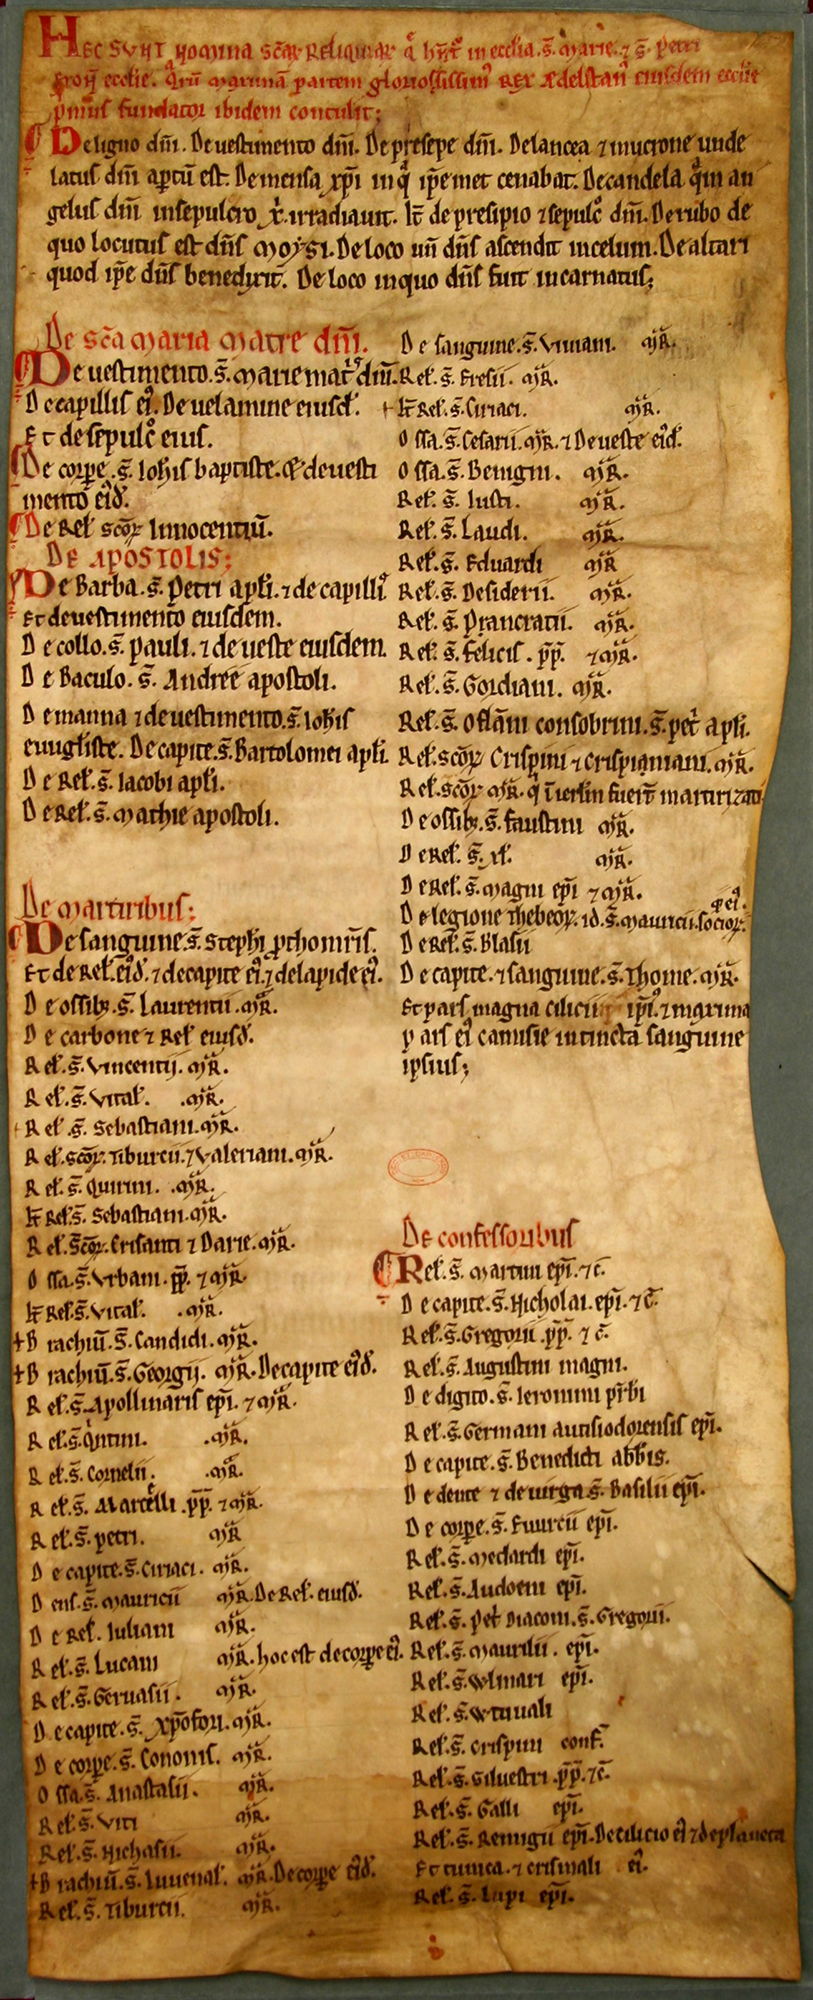 HEC SUNT NOMINA sc̄aꝝ Reliquiaꝝ q̄ hn̄t̄ in ecclia. s̄. Marie. ⁊ s̄. petri
exon̄ ecclie. q̄rū maximā partem gloriosissim᷒ rex Ædelstan᷒ eiusdem eccl̄ie
p̄mus fundator ibidem contulit;
De ligno dn̄i. De uestimento dn̄i. De presepe dn̄i. De lancea ⁊ mucrone unde
latus dn̄i aptū est. De mensa xp̄i in q̄ ip̄emet cenabat. De candela q̄m an
gelus dn̄i in sepulcro x̄. irradiauit. It̄ de presipio ⁊ sepulc̄ dn̄i. De rubo de
quo locutus est dn̄s Moysi. De loco un̄ dn̄s ascendit in celum. De altari
quod ip̄e dn̄s benedixit. De loco in quo dn̄s fuit incarnatus;
De sc̄a Maria Matre dn̄i.
De uestimento. s̄. Marie mat̄s dn̄i.
De capillis ei᷒. De uelamine eiusd̄.
Et de sepulc̄ eius.
De corꝑe. s̄. Ioh̄is baptiste. & de uesti
mento eid̄.
De Rel̄ sc̄oꝝ Innocentiū.
DE APOSTOLIS;
De Barba. s̄. Petri apl̄i. ⁊ de capill᷒
Et de uestimento eiusdem.
De collo. s̄. pauli. ⁊ de ueste eiusdem.
De Baculo. s̄. Andree apostoli.
De manna ⁊ de uestimento. s̄. Ioh̄is
euuḡliste. De capite. s̄. Bartolomei apl̄i.
De Rel̄. s̄. Iacobi apl̄i.
De Rel̄. s̄. Mathie apostoli.
De Martiribus;
De sanguine. s̄. Steph̄i ꝓthom̄ris.
Et de Rel̄. eid̄. ⁊ de capite ei᷒. ⁊ de lapide ei᷒.
De ossibꝫ. s̄. Laurentii. M̄R.
De carbone ⁊ Rel̄ eiusd̄.
Rel̄. s̄. Vincentij. M̄R.
Rel̄. s̄. Vital̄. M̄R.
Rel̄. s̄. Sebastiani. M̄R.
Rel̄. sc̄oꝝ. Tiburcii. ⁊ Valeriani. M̄R.
Rel̄. s̄. Quirini. M̄R.
It̄ Rel̄. s̄. Sebastiani. M̄R.
Rel̄. sc̄oꝝ. Crisanti ⁊ Darie. M̄R.
Ossa. s̄. Vrbani. p̄p̄. ⁊ M̄R.
It̄ Rel̄. s̄. Vital̄. M̄R.
+ Brachiū. S̄. Candidi. M̄R.
+ Brachiū. s̄. Georgij. M̄R. De capite eid̄.
Rel̄. s̄. Apollinaris ep̄i. ⁊ M̄R.
Rel̄. s̄. Q̄ntini. M̄R.
Rel̄. s̄. Cornelii. M̄R.
Rel̄. s̄. Marcelli. p̄p̄. ⁊ M̄R.
Rel̄. s̄. Petri. M̄R
De capite. s̄. Ciriaci. M̄R.
Dens. s̄. Mauricii M̄R. De Rel̄. eiusd̄.
De Rel̄. Iuliani M̄R.
Rel̄. s̄. Luciani M̄R. hoc est de corꝑe ei᷒.
Rel̄. s̄. Geruasii. M̄R.
De capite. s̄. Xp̄ofori. M̄R.
De corꝑe. s̄. Cononis. M̄R.
Ossa. s̄. Anastasii. M̄R.
Rel̄. s̄. Viti M̄R.
Rel̄. s̄. Nichasii. M̄R.
+ Brachiū. s̄. Iuuenal̄. M̄R. De corꝑe eid̄.
Rel̄. s̄. Tiburcii. M̄R.
De sanguine. s̄. Viuiani. M̄R.
Rel̄. s̄. Fresii. M̄R.
+ It̄ Rel̄. s̄. Ciriaci. M̄R.
Ossa. s̄. Cesarii. M̄R. ⁊ De ueste eid̄.
Ossa. s̄. Benigni. M̄R.
Rel̄. s̄. Iusti. M̄R.
Rel̄. s̄. Laudi. M̄R.
Rel̄. s̄. Eduardi M̄R
Rel̄. s̄. Desiderii. M̄R.
Rel̄. s̄. Prancratii. M̄R.
Rel̄. s̄. Felicis. p̄p̄. ⁊ M̄R.
Rel̄. s̄. Gordiani. M̄R.
Rel̄. s̄. consobrini. s̄. pet̄ apl̄i.
Rel̄. sc̄oꝝ Crispini ⁊ Crispiniani. M̄R.
Rel̄. sc̄oꝝ M̄R. q̄ fuert̄ martirizati
De ossibꝫ. s̄. Faustini M̄R.
De Rel̄. s̄. xl̄. M̄R.
De Rel̄. s̄. Magni ep̄i ⁊ M̄R.
De legione Thebeoꝝ. id. s̄. Mauricii. socioꝝ. q̄ ei᷒.
De Rel̄. s̄. Blasii
De capite. ⁊ sanguine. s̄. Thome. M̄R.
Et pars magna cilicii ip̄i᷒. ⁊ maxima
pars ei᷒ camisie intincta sanguine
ipsius;
De confessoribus
Rel̄. s̄. Martini ep̄i. ⁊ c̄.
De capite. s̄. Nicholai. ep̄i. ⁊ c̄.
Rel̄. s̄. Gregorii. p̄p̄. ⁊ c̄.
Rel̄. s̄. Augustini magni.
De digito. s̄. Ieronimi pr̄bi
Rel̄. s̄. Germani autisiodorensis ep̄i.
De capite. s̄. Benedicti abb̄is.
De dente ⁊ de uirga. s̄. Basilii ep̄i.
De corꝑe. s̄. Euurcii ep̄i.
Rel̄. s̄. Medardi ep̄i.
Rel̄. s̄. Audoeni ep̄i.
Rel̄. s̄. Pet̄ Diaconi. s̄. Gregorii.
Rel̄. s̄. Maurilii. ep̄i.
Rel̄. s̄. Wlmari ep̄i.
Rel̄. s̄. Winuali
Rel̄. s̄. Crispini conf̄.
Rel̄. s̄. Siluestri. p̄p̄. ⁊ c̄.
Rel̄. s̄. Galli ep̄i.
Rel̄. s̄. Remigii ep̄i. De cilicio ei᷒ ⁊ de planeta
Et tunica. ⁊ crismali ei᷒.
Rel̄. s̄. Lupi ep̄i.